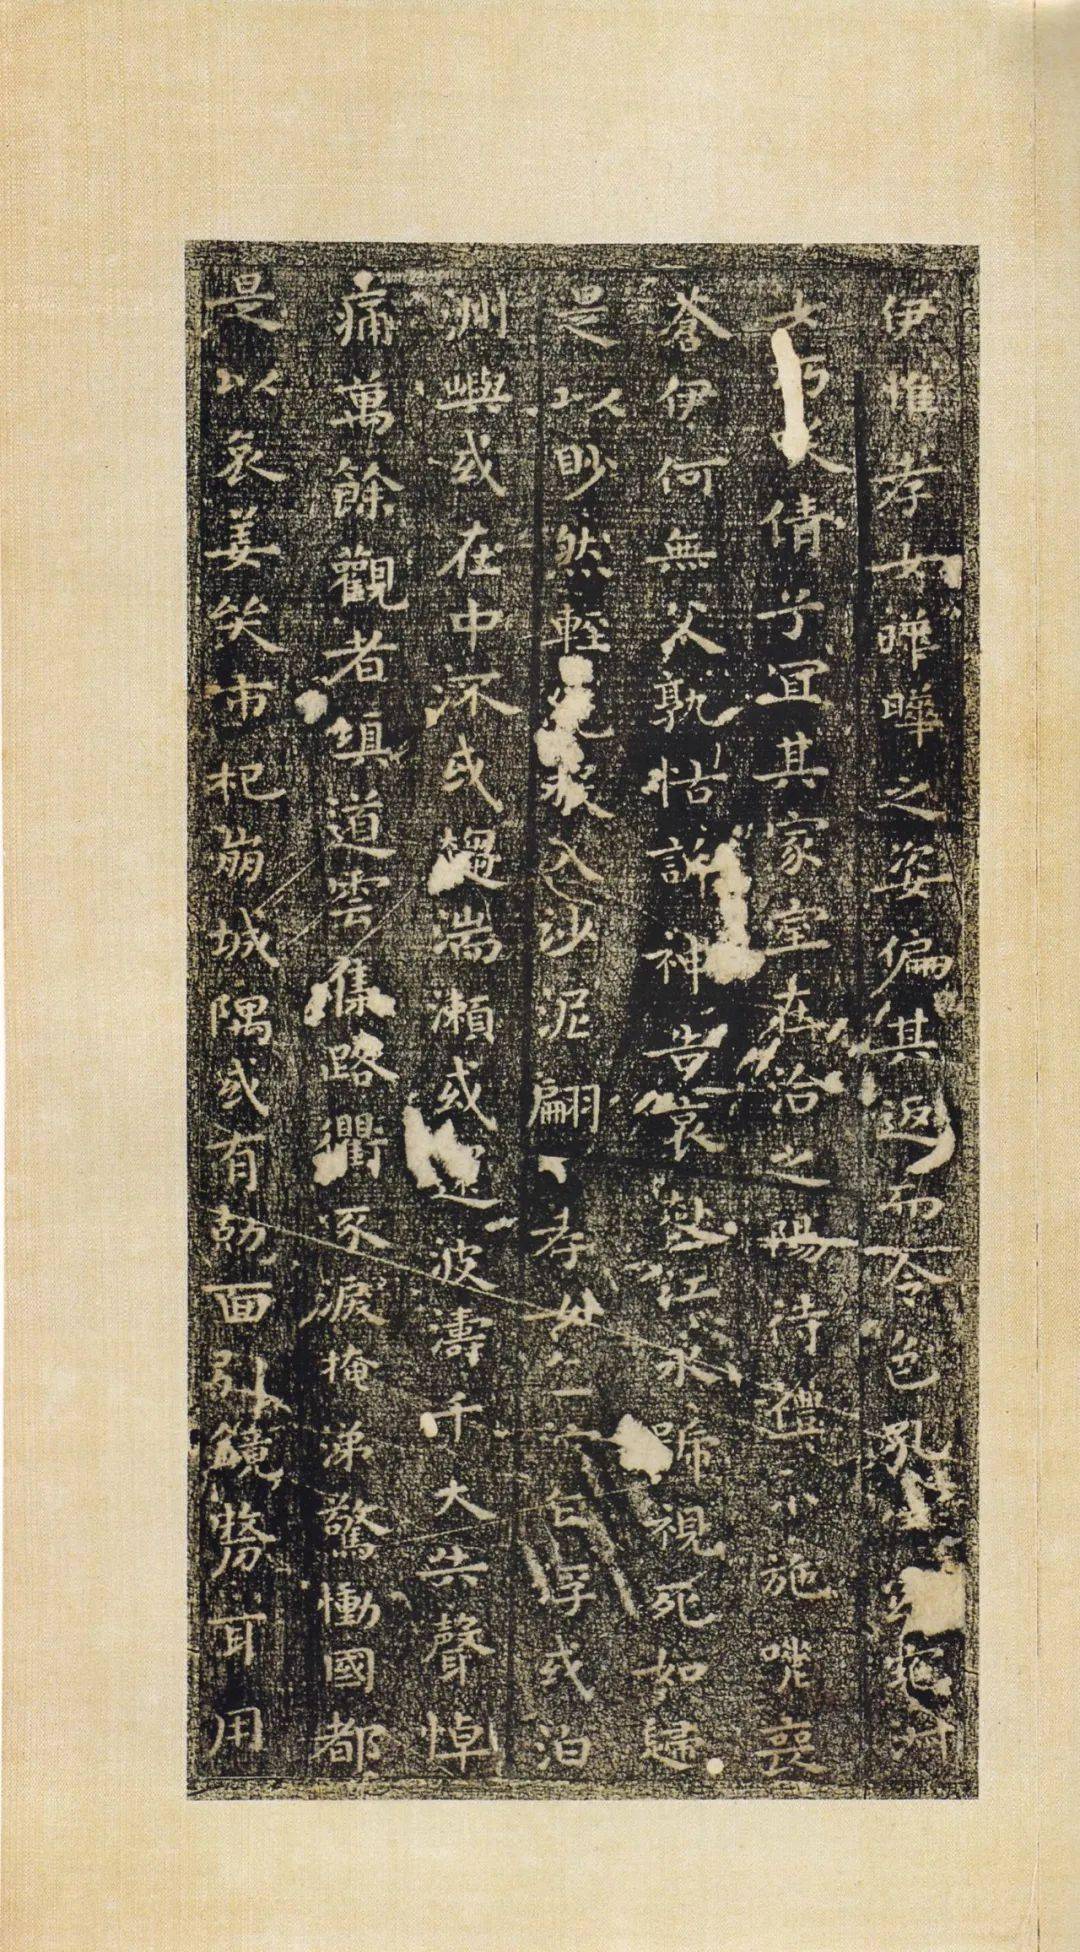 伊惟孝女曄曄之姿偏其返而令色孔儀窈窕淑
女巧笑倩兮宜其家室在洽之陽待禮未施嗟喪
蒼伊何無父孰怙訴神告哀赴江永號視死如歸
是以眇然輕絕投入沙泥翩孝女乍沉乍浮或泊
洲嶼或在中流或趨湍瀨或還波濤千夫失聲悼
痛萬餘觀者填道雲集路衢泣淚掩涕驚慟國都
是以哀姜哭市杞崩城隅或有剋面引鏡剺耳用